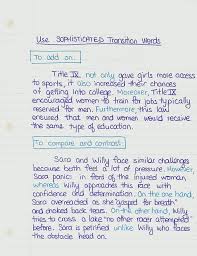 Use SOPHISTICATED Transition Words
To add on...
Title IX not only gave girls more access
to sports, it also increased their chances
of getting into college. Moreover, Title IX
encouraged women to train for jobs typically
reserved for men. Furthermore, this law
ensured that men and women would receive
the same type of education.
To compare and contrast:
Sara and Willy face similar challenges
because both feel a lot of pressure. However,
Sara panics in fear of the injured woman,
whereas Willy approaches this race with
confidence and determination. On the one hand,
Sara overreacted as she "gasped for breath"
and choked back tears. On the other hand, Willy
tries to cross a lake "no other racer attempted
before. Sara is petrified unlike Willy who faces
the obstacle head on.